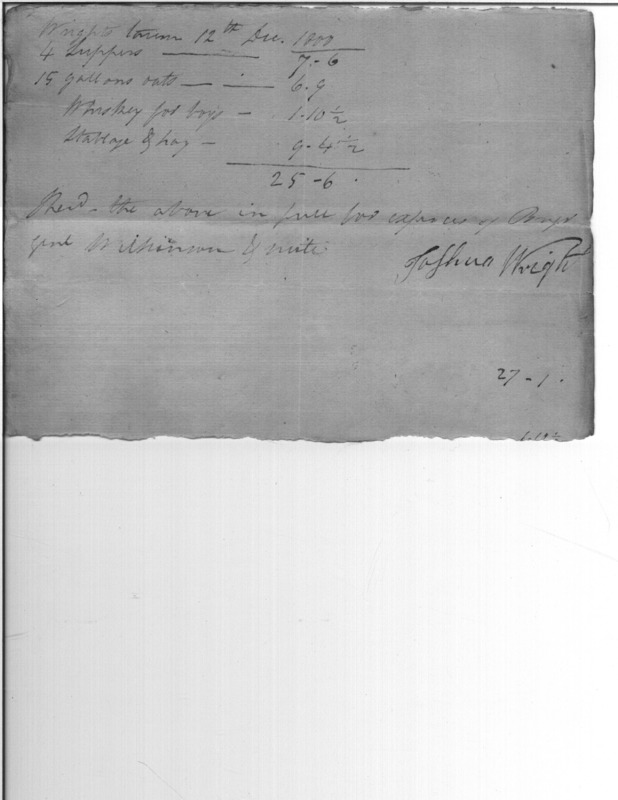 Wrights tavern 12th Dec. 1800
4 Suppers — 7-6
15 gallons oats — 6.9
Whiskey for boys — 1.10½
Stablage & hay — 9.4½
25-6.
Recd the above in full for expences of Brigr
genl Wilkinson & suite
Joshua Wright
27-1.